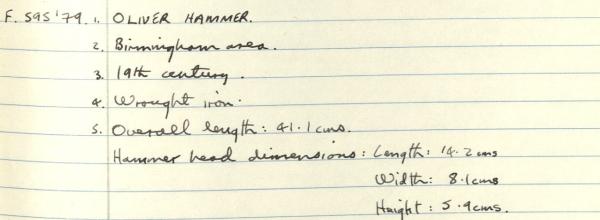 F. S9S '79. 1. OLIVER HAMMER.
2. Birmingham area.
3. 19th century.
4. Wrought iron.
5. Overall length: 41.1cms.
Hammer head dimensions: Length: 14.2cms
Width: 8.1cms
Height: 5.9cms.